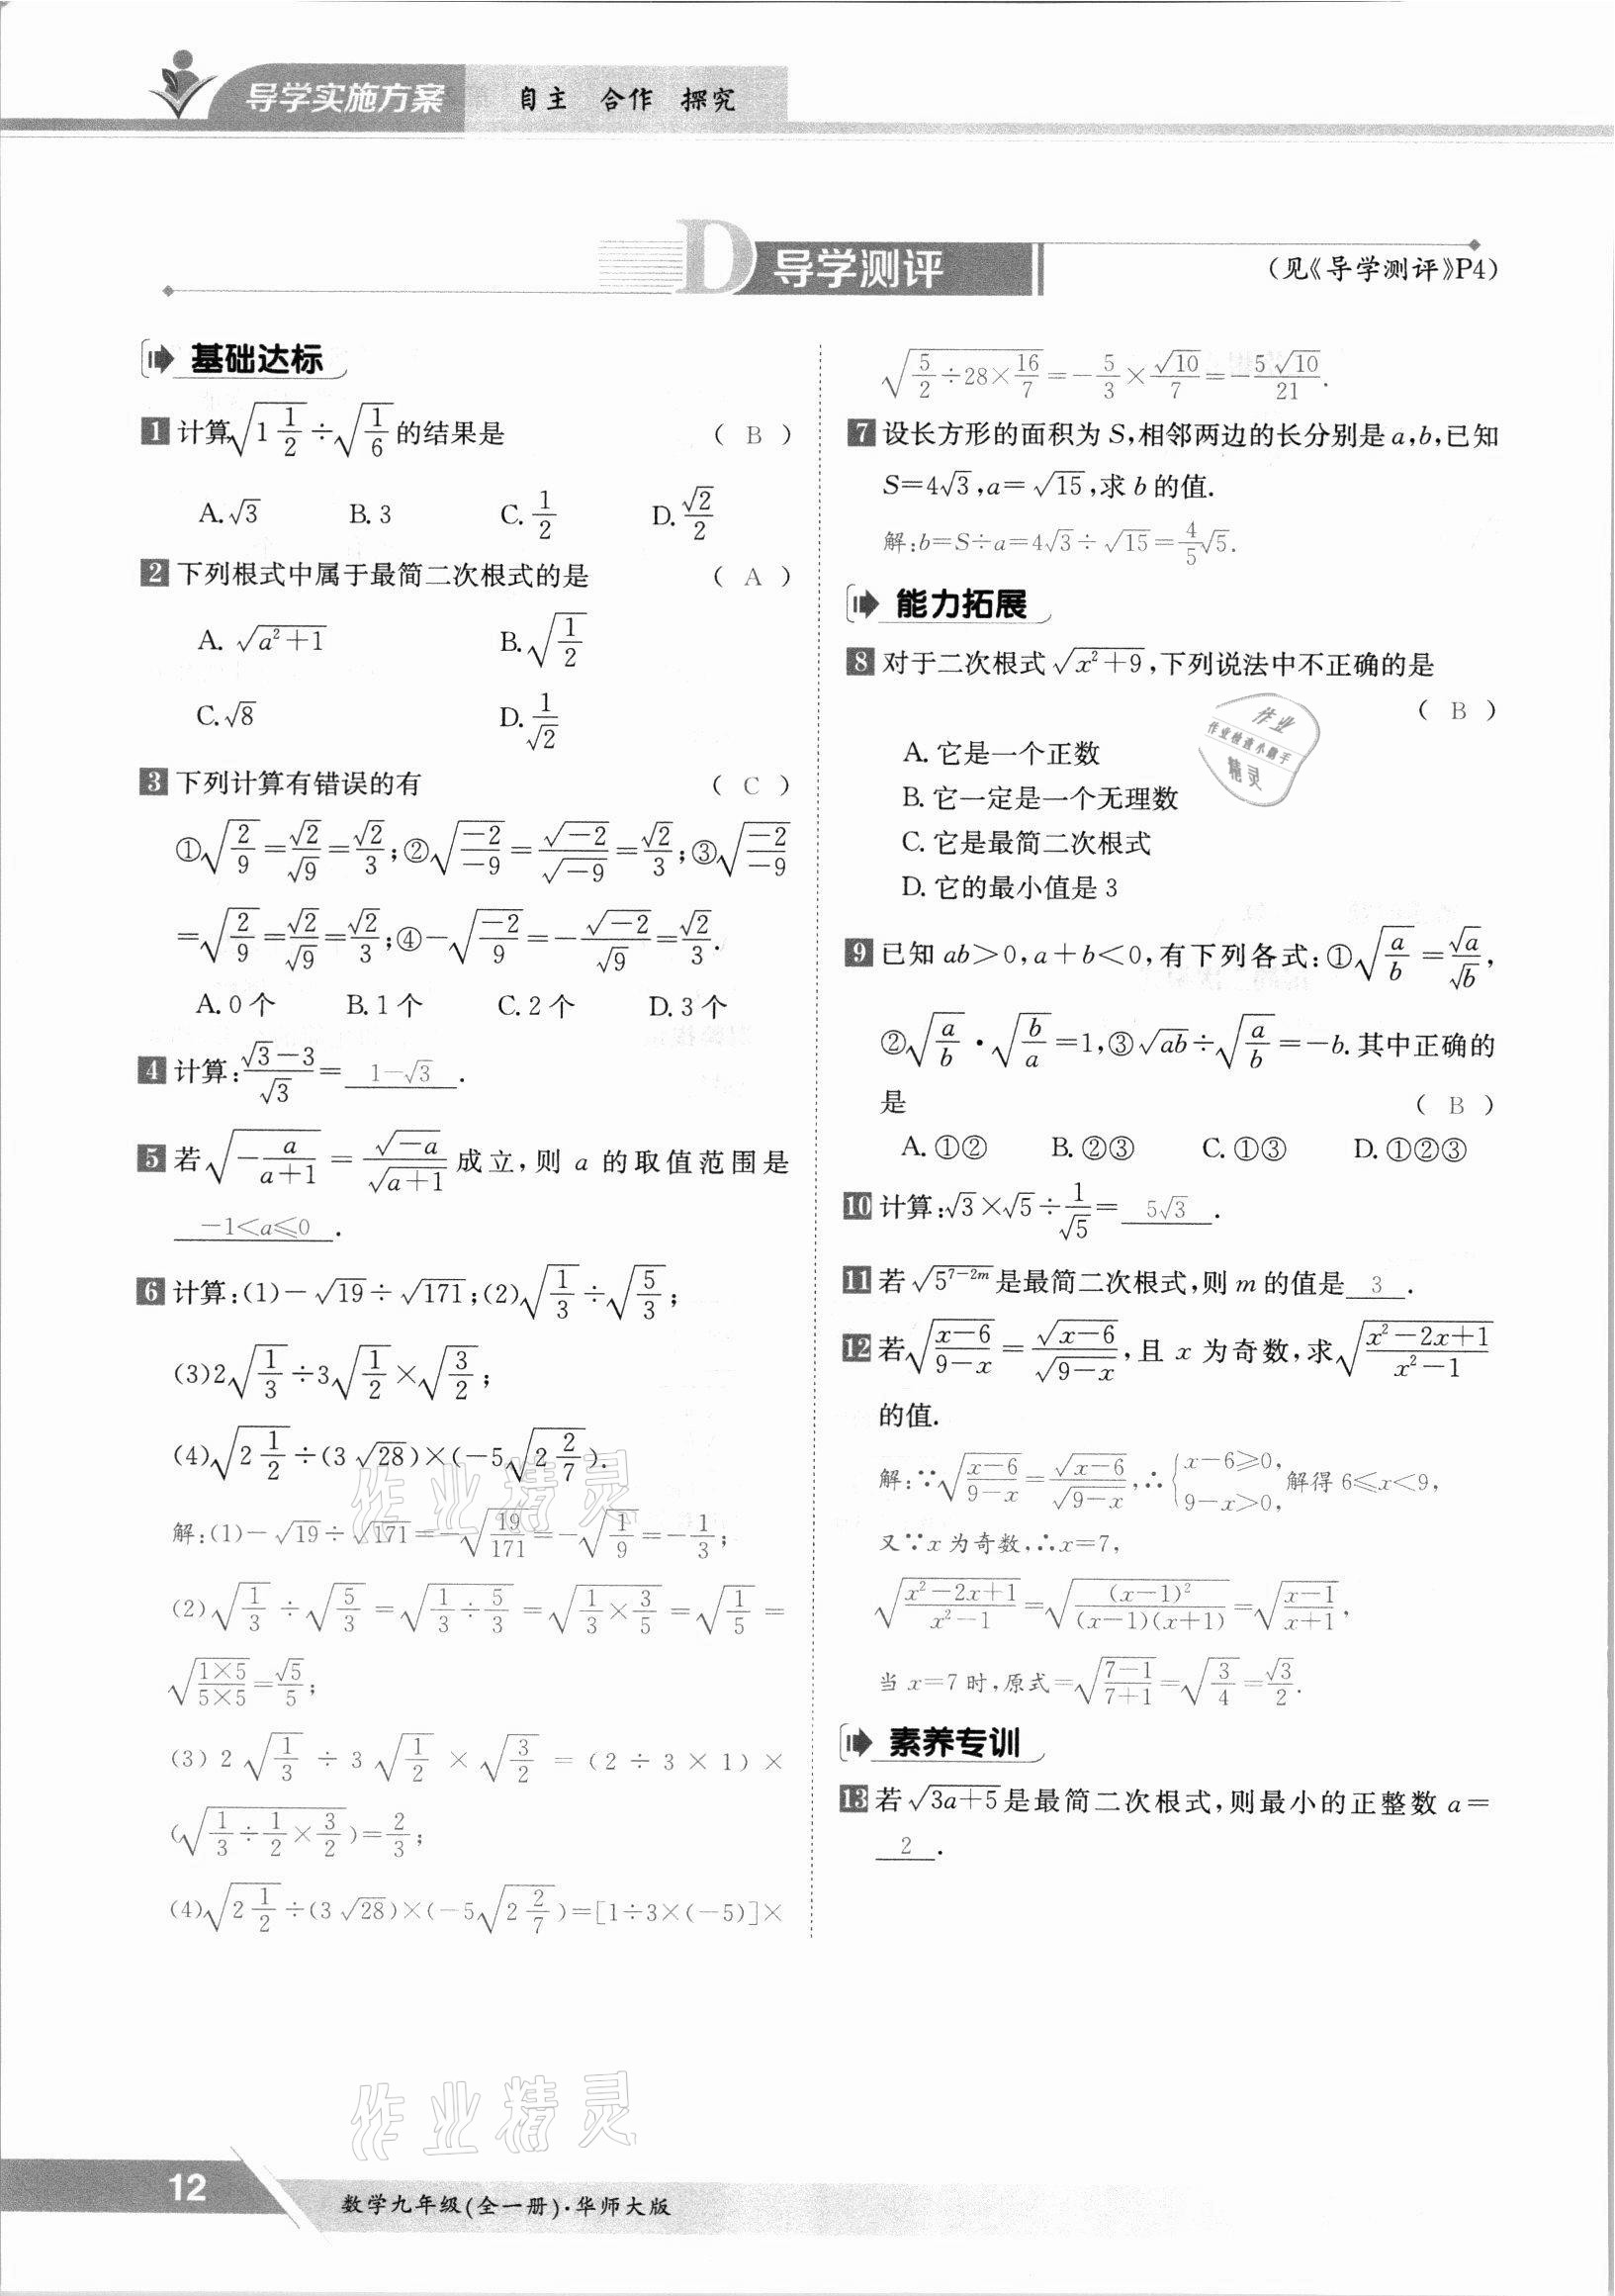 导学实施方案 自主 合作 探究
D 导学测评
(见《导学测评》P4)
基础达标
1 计算√(1 1/2)÷√(1/6)的结果是 ( B )
A.√3 B.3 C.1/2 D.√2/2
2 下列根式中属于最简二次根式的是 ( A )
A.√(a²+1) B.√(1/2)
C.√8 D.1/√2
3 下列计算有错误的有 ( C )
①√(2/9)=√2/√9=√2/3;②√(-2/-9)=√-2/√-9=√2/3;③√(-2/-9)
=√(2/9)=√2/√9=√2/3;④-√(-2/9)=-√-2/√9=√2/3.
A.0个 B.1个 C.2个 D.3个
4 计算:(√3-3)/√3=1-√3.
5 若√(-a/(a+1))=√(-a)/√(a+1)成立,则 a 的取值范围是
-1<a≤0.
6 计算:(1)-√19÷√171;(2)√(1/3)÷√(5/3);
(3)2√(1/3)÷3√(1/2)×√(3/2);
(4)√(2 1/2)÷(3√28)×(-5√(2 2/7)).
解:(1)-√19÷√171=-√(19/171)=-√(1/9)=-1/3;
(2)√(1/3)÷√(5/3)=√(1/3÷5/3)=√(1/3×3/5)=√(1/5)=
√((1×5)/(5×5))=√5/5;
(3)2√(1/3)÷3√(1/2)×√(3/2)=(2÷3×1)×
(√(1/3÷1/2×3/2))=2/3;
(4)√(2 1/2)÷(3√28)×(-5√(2 2/7))=[1÷3×(-5)]×
√(5/2÷28×16/7)=-5/3×√10/7=-5√10/21.
7 设长方形的面积为S,相邻两边的长分别是a,b,已知
S=4√3,a=√15,求b的值.
解:b=S÷a=4√3÷√15=4/5√5.
能力拓展
8 对于二次根式√(x²+9),下列说法中不正确的是
( B )
A.它是一个正数
B.它一定是一个无理数
C.它是最简二次根式
D.它的最小值是3
9 已知ab>0,a+b<0,有下列各式:①√(a/b)=√a/√b,
②√(a/b)·√(b/a)=1,③√ab÷√(a/b)=-b.其中正确的
是 ( B )
A.①② B.②③ C.①③ D.①②③
10 计算:√3×√5÷1/√5=5√3.
11 若√(5^(7-2m))是最简二次根式,则m的值是3.
12 若√((x-6)/(9-x))=√(x-6)/√(9-x),且 x 为奇数,求√((x²-2x+1)/(x²-1))
的值.
解:∵√((x-6)/(9-x))=√(x-6)/√(9-x),∴{x-6≥0, 9-x>0,解得6≤x<9,
又∵x为奇数,∴x=7,
√((x²-2x+1)/(x²-1))=√((x-1)²/((x-1)(x+1)))=√((x-1)/(x+1)),
当x=7时,原式=√((7-1)/(7+1))=√(3/4)=√3/2.
素养专训
13 若√(3a+5)是最简二次根式,则最小的正整数a=
2.
作业
作业检查小助手
精灵
作业精灵
作业精灵
12
数学九年级(全一册)·华师大版